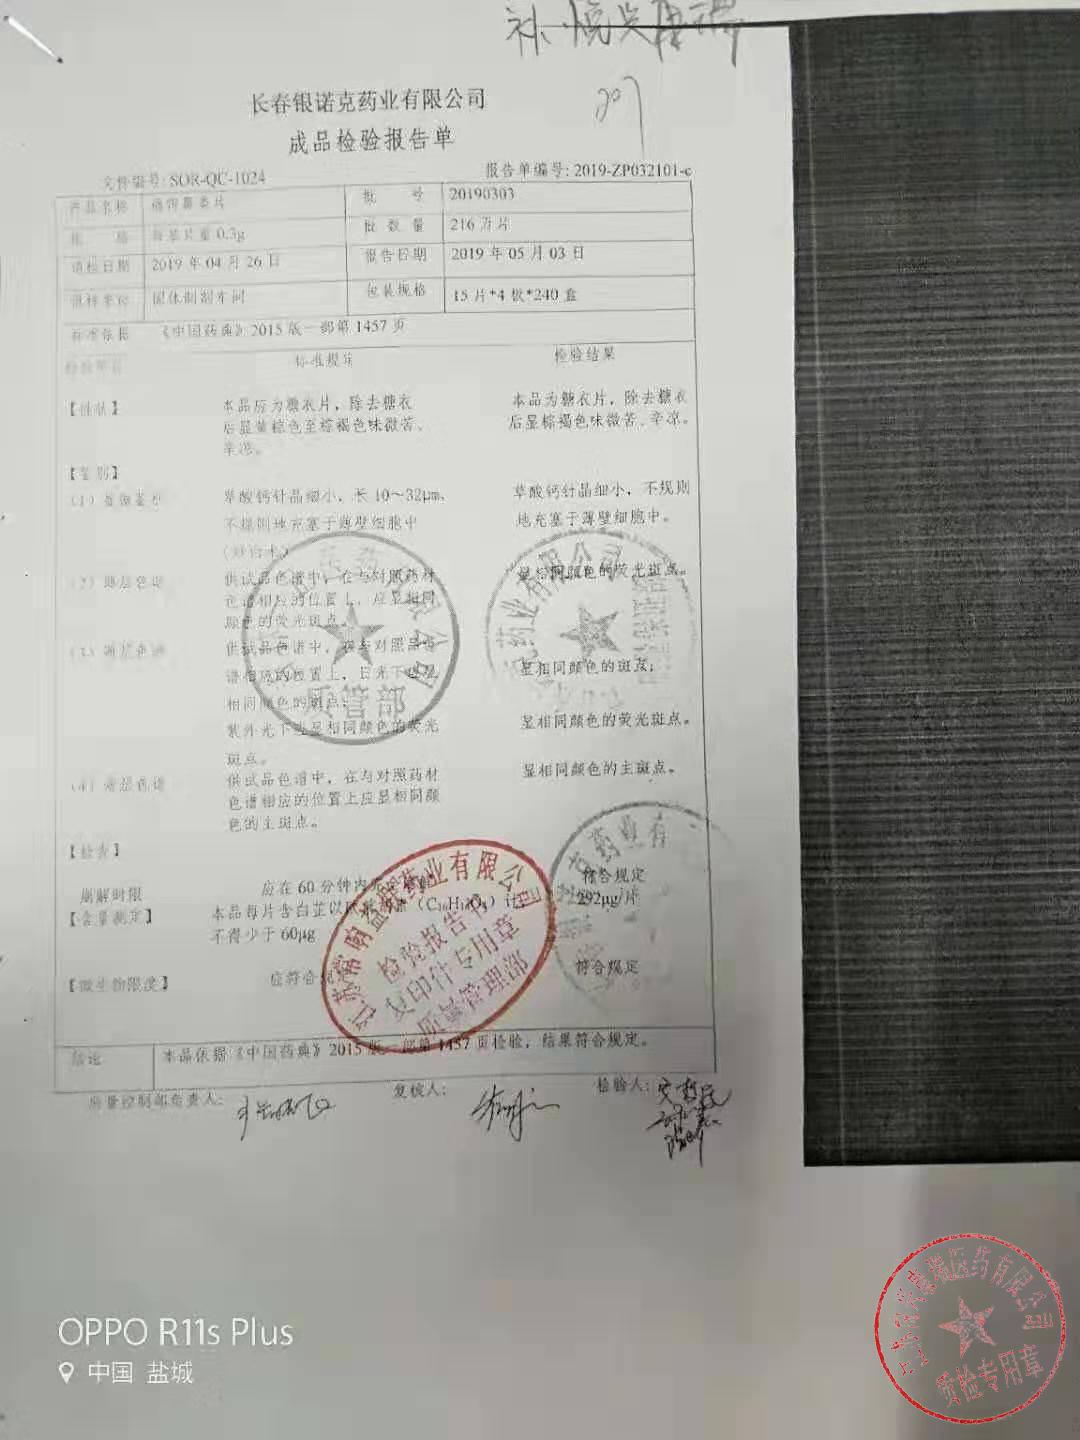 长春银诺克药业有限公司
成品检验报告单
文件编号: SOR-QC-1024
报告单编号: 2019-ZP032101-c
产品名称
批 号 20190303
规 格 每基片重 0.3g 批 数 量 216 万片
请检日期 2019 年 04 月 26 日 报告日期 2019 年 05 月 03 日
请样单位 固体制剂车间 包装规格 15 片*4 板*240 盒
标准依据 《中国药典》2015 版一部第 1457 页
检验项目 标准规定 检验结果
【性状】 本品应为糖衣片，除去糖衣 本品为糖衣片，除去糖衣
后显黄棕色至棕褐色味微苦、 后显棕褐色味微苦、辛凉。
辛凉。
【鉴别】
草酸钙针晶细小，长 10～32μm， 草酸钙针晶细小，不规则
不规则地充塞于薄壁细胞中 地充塞于薄壁细胞中。
(炒白术)
(2) 薄层色谱 供试品色谱中，在与对照药材 显相同颜色的荧光斑点。
色谱相应的位置上，应显相同
颜色的荧光斑点
(3) 薄层色谱 供试品色谱中，在与对照品色
谱相应的位置上，日光下应显 显相同颜色的斑点；
相同颜色的斑点；
紫外光下应显相同颜色的荧光 显相同颜色的荧光斑点。
斑点。
(4) 薄层色谱 供试品色谱中，在与对照药材 显相同颜色的主斑点。
色谱相应的位置上应显相同颜
色的主斑点。
【检查】
崩解时限 应在 60 分钟内 符合规定
【含量测定】 本品每片含白芷以 计 292μg/片
不得少于 60μg
【微生物限度】 应符合规定 符合规定
结论 本品依据《中国药典》2015 版一部第 1457 页检验，结果符合规定。
质量控制部负责人: 复核人: 检验人:
质管部
药业有限公司
检验报告书
复印件专用章
质量管理部
质检专用章
OPPO R11s Plus
中国 盐城